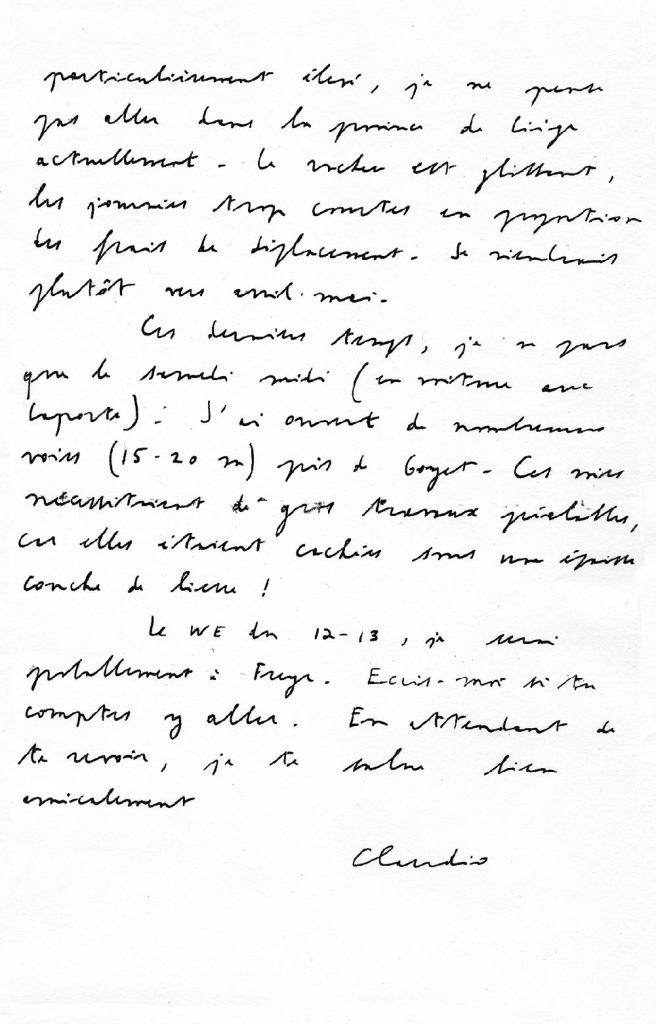 particulièrement élevé, je ne pense
pas aller dans la province de Liège
actuellement. Le rocher est glissant,
les journées trop courtes en proportion
des frais de déplacement. Je viendrais
plutôt vers avril-mai.
Ces derniers temps, je ne pars
que le samedi midi (en voiture avec
Laporte). J'ai ouvert de nombreuses
voies (15-20 m) près de Goyet. Ces voies
nécessitaient de gros travaux préalables,
car elles étaient cachées sous une épaisse
couche de lierre !
Le WE du 12-13, je serai
probablement à Freyr. Ecris-moi si tu
comptes y aller. En attendant de
te revoir, je te salue bien
amicalement
Claudio